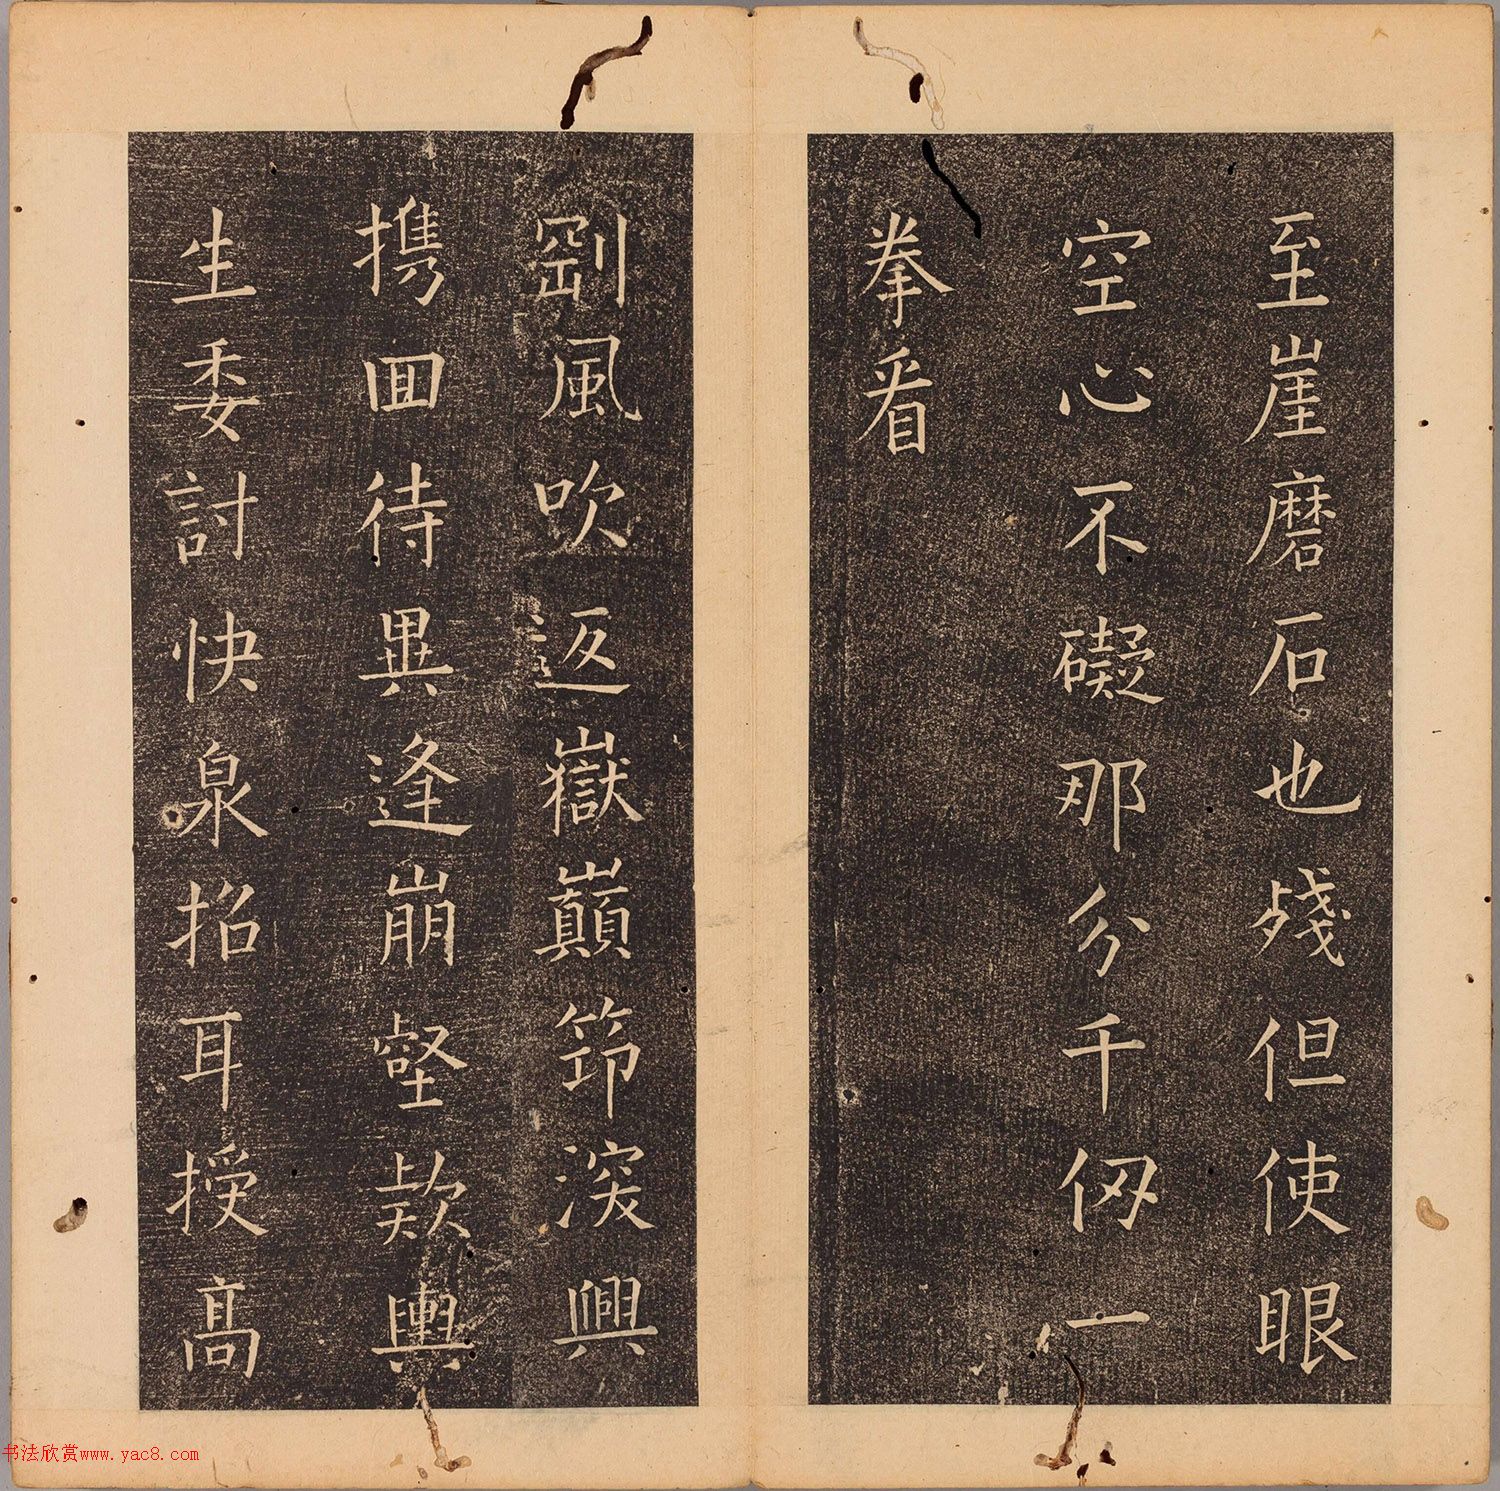 至崖磨石也殘但使眼
空心不礙那分千仞一
拳看
剛風吹返嶽巔筇深興
携囬待異逢崩壑欵輿
生委討快泉招耳授高
书法欣赏www.yac8.com